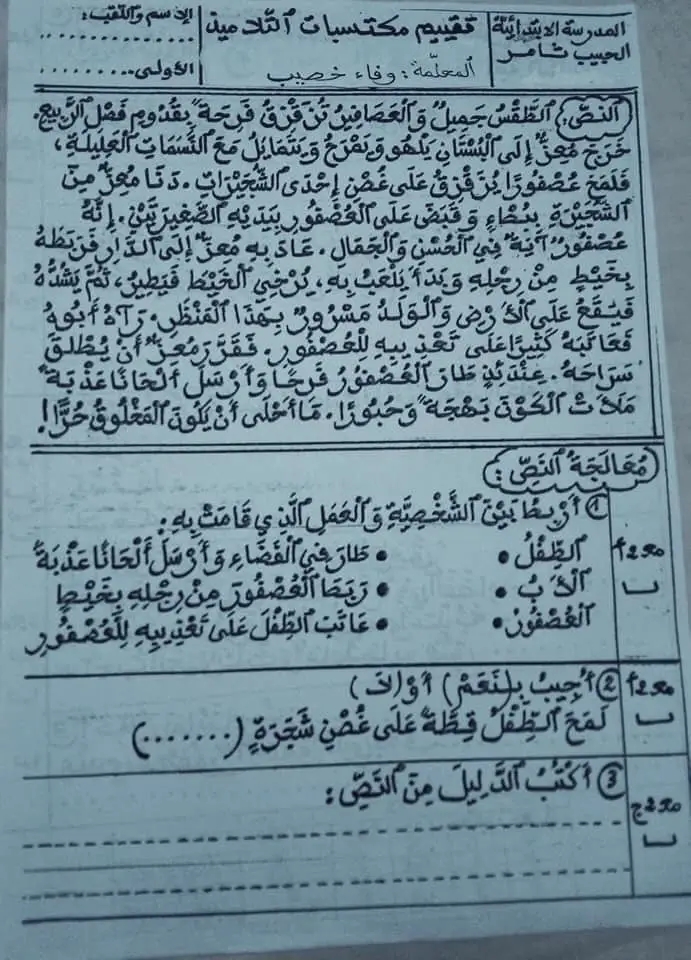 المدرسة الابتدائية
الحبيب ثامر
تقييم مكتسبات التلاميذ
المعلّمة: وفاء خصيب
الاسم واللقب:
..............
الأولى........
النَّصّ: الطَّقْسُ جَمِيلٌ وَالْعَصَافِيرُ تُزَقْزِقُ فَرِحَةً بِقُدُومِ فَصْلِ الرَّبِيعِ.
خَرَجَ مُعِزٌّ إِلَى الْبُسْتَانِ يَلْهُو وَيَمْرَحُ وَيَتَمَايَلُ مَعَ النَّسَمَاتِ الْعَلِيلَةِ،
فَلَمَحَ عُصْفُورًا يُزَقْزِقُ عَلَى غُصْنِ إِحْدَى الشُّجَيْرَاتِ. دَنَا مُعِزٌّ مِنَ
الشُّجَيْرَةِ بِبُطْءٍ وَقَبَضَ عَلَى الْعُصْفُورِ بِيَدَيْهِ الصَّغِيرَتَيْنِ. إِنَّهُ
عُصْفُورٌ آيَةٌ فِي الْحُسْنِ وَالْجَمَالِ. عَادَ بِهِ مُعِزٌّ إِلَى الدَّارِ فَرَبَطَهُ
بِخَيْطٍ مِنْ رِجْلِهِ وَبَدَأَ يَلْعَبُ بِهِ، يُرْخِي الْخَيْطَ فَيَطِيرُ، ثُمَّ يَشُدُّهُ
فَيَقَعُ عَلَى الْأَرْضِ وَالْوَلَدُ مَسْرُورٌ بِهَذَا الْمَنْظَرِ. رَآهُ أَبُوهُ
فَعَاتَبَهُ كَثِيرًا عَلَى تَعْذِيبِهِ لِلْعُصْفُورِ. فَقَرَّرَ مُعِزٌّ أَنْ يُطْلِقَ
سَرَاحَهُ. عِنْدَئِذٍ طَارَ الْعُصْفُورُ فَرِحًا وَأَرْسَلَ أَلْحَانًا عَذْبَةً
مَلَأَتْ الْكَوْنَ بَهْجَةً وَحُبُورًا. مَا أَحْلَى أَنْ يَكُونَ الْمَخْلُوقُ حُرًّا!
مُعَالَجَةُ النَّصِّ:
① أَرْبِطُ بَيْنَ الشَّخْصِيَّةِ وَالْعَمَلِ الَّذِي قَامَتْ بِهِ:
الطِّفْلُ • • طَارَ فِي الْفَضَاءِ وَأَرْسَلَ أَلْحَانًا عَذْبَةً
الْأَبُ • • رَبَطَ الْعُصْفُورَ مِنْ رِجْلِهِ بِخَيْطٍ
الْعُصْفُورُ • • عَاتَبَ الطِّفْلَ عَلَى تَعْذِيبِهِ لِلْعُصْفُورِ
مع2أ
② أُجِيبُ بِـ(نَعَمْ) أَوْ (لَا)
لَمَحَ الطِّفْلُ قِطَّةً عَلَى غُصْنِ شَجَرَةٍ (.......)
مع2أ
③ أَكْتُبُ الدَّلِيلَ مِنَ النَّصِّ:
مع2ج